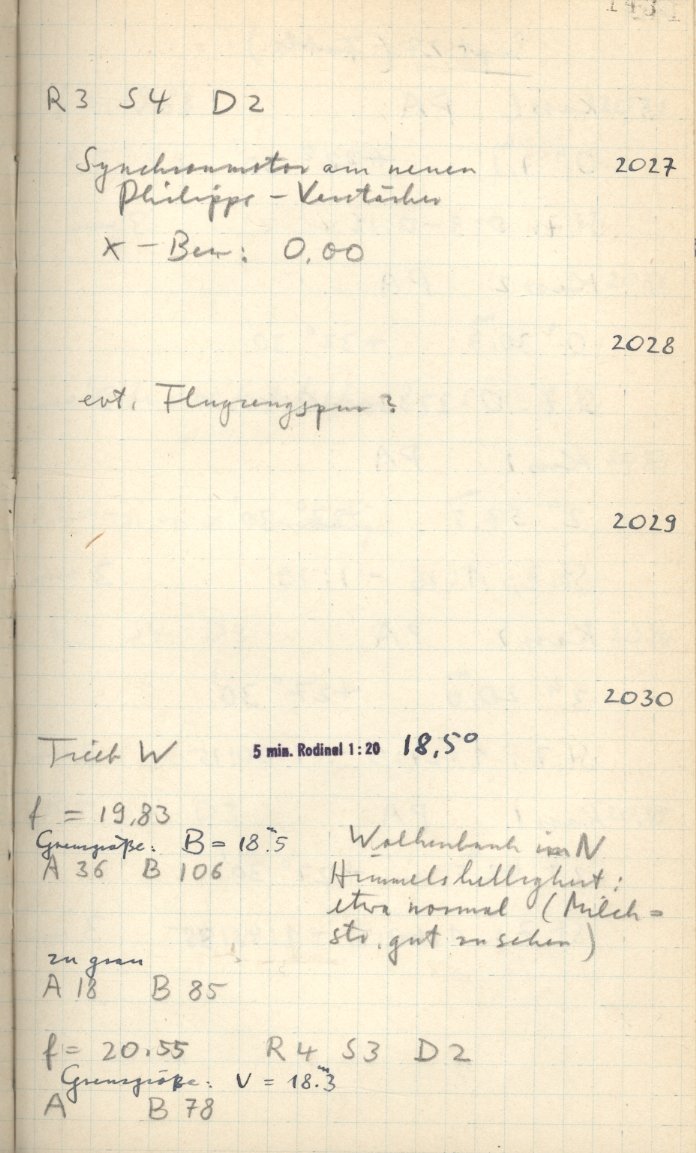 1431
R3 S4 D2
Synchronmotor am neuen 2027
Philipps-Verstärker
X-Bew: 0,00
2028
evt. Flugzeugspur?
2029
2030
Trieb W 5 min. Rodinal 1:20 18,5°
f = 19,83
Grenzgröße: B = 18.ᵐ5 Wolkenbank im N
A 36 B 106 Himmelshelligkeit:
etwa normal (Milch=
str. gut zu sehen)
zu grau
A 18 B 85
f = 20.55 R4 S3 D2
Grenzgröße: V = 18.ᵐ3
A B 78